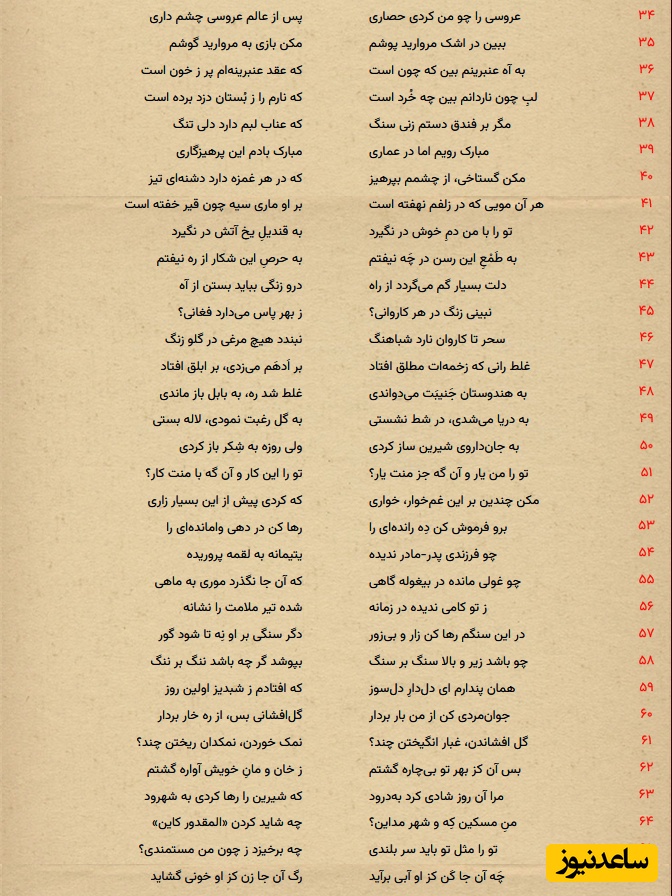 ۳۴ عروسی را چو من کردی حصاری پس از عالم عروسی چشم داری
۳۵ ببین در اشک مروارید پوشم مکن بازی به مروارید گوشم
۳۶ به آه عنبرینم بین که چون است که عقد عنبرینه‌ام پر ز خون است
۳۷ لبِ چون ناردانم بین چه خُرد است که نارم را ز بُستان دزد برده است
۳۸ مگر بر فندق دستم زنی سنگ که عناب لبم دارد دلی تنگ
۳۹ مبارک رویم اما در عماری مبارک بادم این پرهیزگاری
۴۰ مکن گستاخی، از چشمم بپرهیز که در هر غمزه دارد دشنه‌ای تیز
۴۱ هر آن مویی که در زلفم نهفته است بر او ماری سیه چون قیر خفته است
۴۲ تو را با من دمِ خوش در نگیرد به قندیلِ یخ آتش در نگیرد
۴۳ به طَمْعِ این رسن در چَه نیفتم به حرصِ این شکار از ره نیفتم
۴۴ دلت بسیار گم می‌گردد از راه درو زنگی بباید بستن از آه
۴۵ نبینی زنگ در هر کاروانی؟ ز بهر پاس می‌دارد فغانی؟
۴۶ سحر تا کاروان نارد شباهنگ نبندد هیچ مرغی در گلو زنگ
۴۷ غلط رانی که زخمه‌ات مطلق افتاد بر اَدهَم می‌زدی، بر ابلق افتاد
۴۸ به هندوستان جَنیبَت می‌دواندی غلط شد ره، به بابل باز ماندی
۴۹ به دریا می‌شدی، در شط نشستی به گل رغبت نمودی، لاله بستی
۵۰ به جان‌داروی شیرین ساز کردی ولی روزه به شِکر باز کردی
۵۱ تو را من یار و آن گه جز منت یار؟ تو را این کار و آن گه با منت کار؟
۵۲ مکن چندین بر این غم‌خوار، خواری که کردی پیش از این بسیار زاری
۵۳ برو فرموش کن دِه رانده‌ای را رها کن در دهی وامانده‌ای را
۵۴ چو فرزندی پدر-مادر ندیده یتیمانه به لقمه پروریده
۵۵ چو غولی مانده در بیغوله گاهی که آن جا نگذرد موری به ماهی
۵۶ ز تو کامی ندیده در زمانه شده تیر ملامت را نشانه
۵۷ در این سنگم رها کن زار و بی‌زور دگر سنگی بر او نِه تا شود گور
۵۸ چو باشد زیر و بالا سنگ بر سنگ بپوشد گر چه باشد ننگ بر ننگ
۵۹ همان پندارم ای دل‌دارِ دل‌سوز که افتادم ز شبدیز اولین روز
۶۰ جوان‌مردی کن از من بار بردار گل‌افشانی بس، از ره خار بردار
۶۱ گل افشاندن، غبار انگیختن چند؟ نمک خوردن، نمکدان ریختن چند؟
۶۲ بس آن کز بهر تو بی‌چاره گشتم ز خان و مانِ خویش آواره گشتم
۶۳ مرا آن روز شادی کرد به‌درود که شیرین را رها کردی به شهرود
۶۴ منِ مسکین کِه و شهر مداین؟ چه شاید کردن «المقدور کاین»
تو را مثل تو باید سر بلندی چه برخیزد ز چون من مستمندی؟
چَه آن جا کَن کز او آبی برآید رگ آن جا زن کز او خونی گشاید
ساعدنیوز